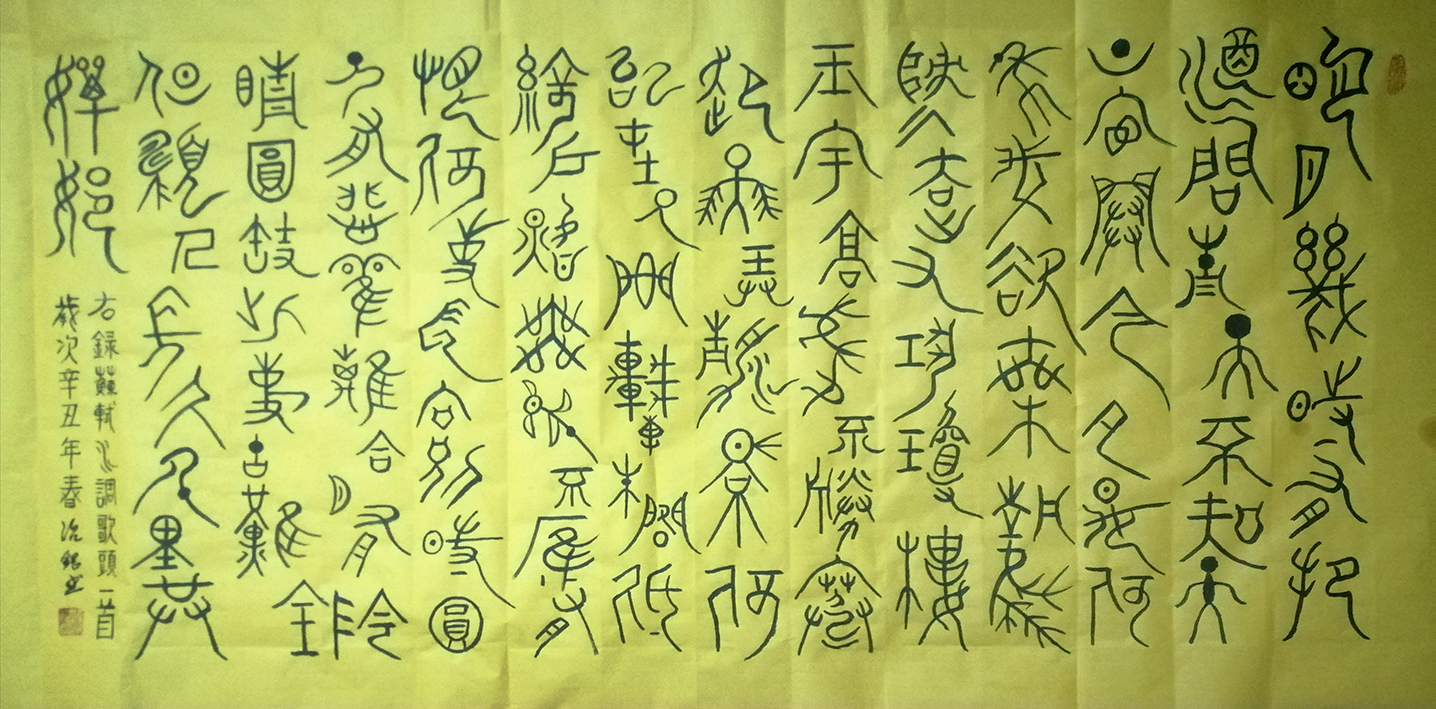 明月幾時有把
酒問青天不知天
上宫闕今夕是何
年我欲乘風
歸去又恐瓊樓
玉宇高處不勝寒
起舞弄清影何
似在人間轉朱閣低
綺户照無眠不應有
恨何事長向別時圓
人有悲歡離合月有陰
晴圓缺此事古難全
但願人長久千里共
嬋娟
右録蘇軾水調歌頭一首
歲次辛丑年春